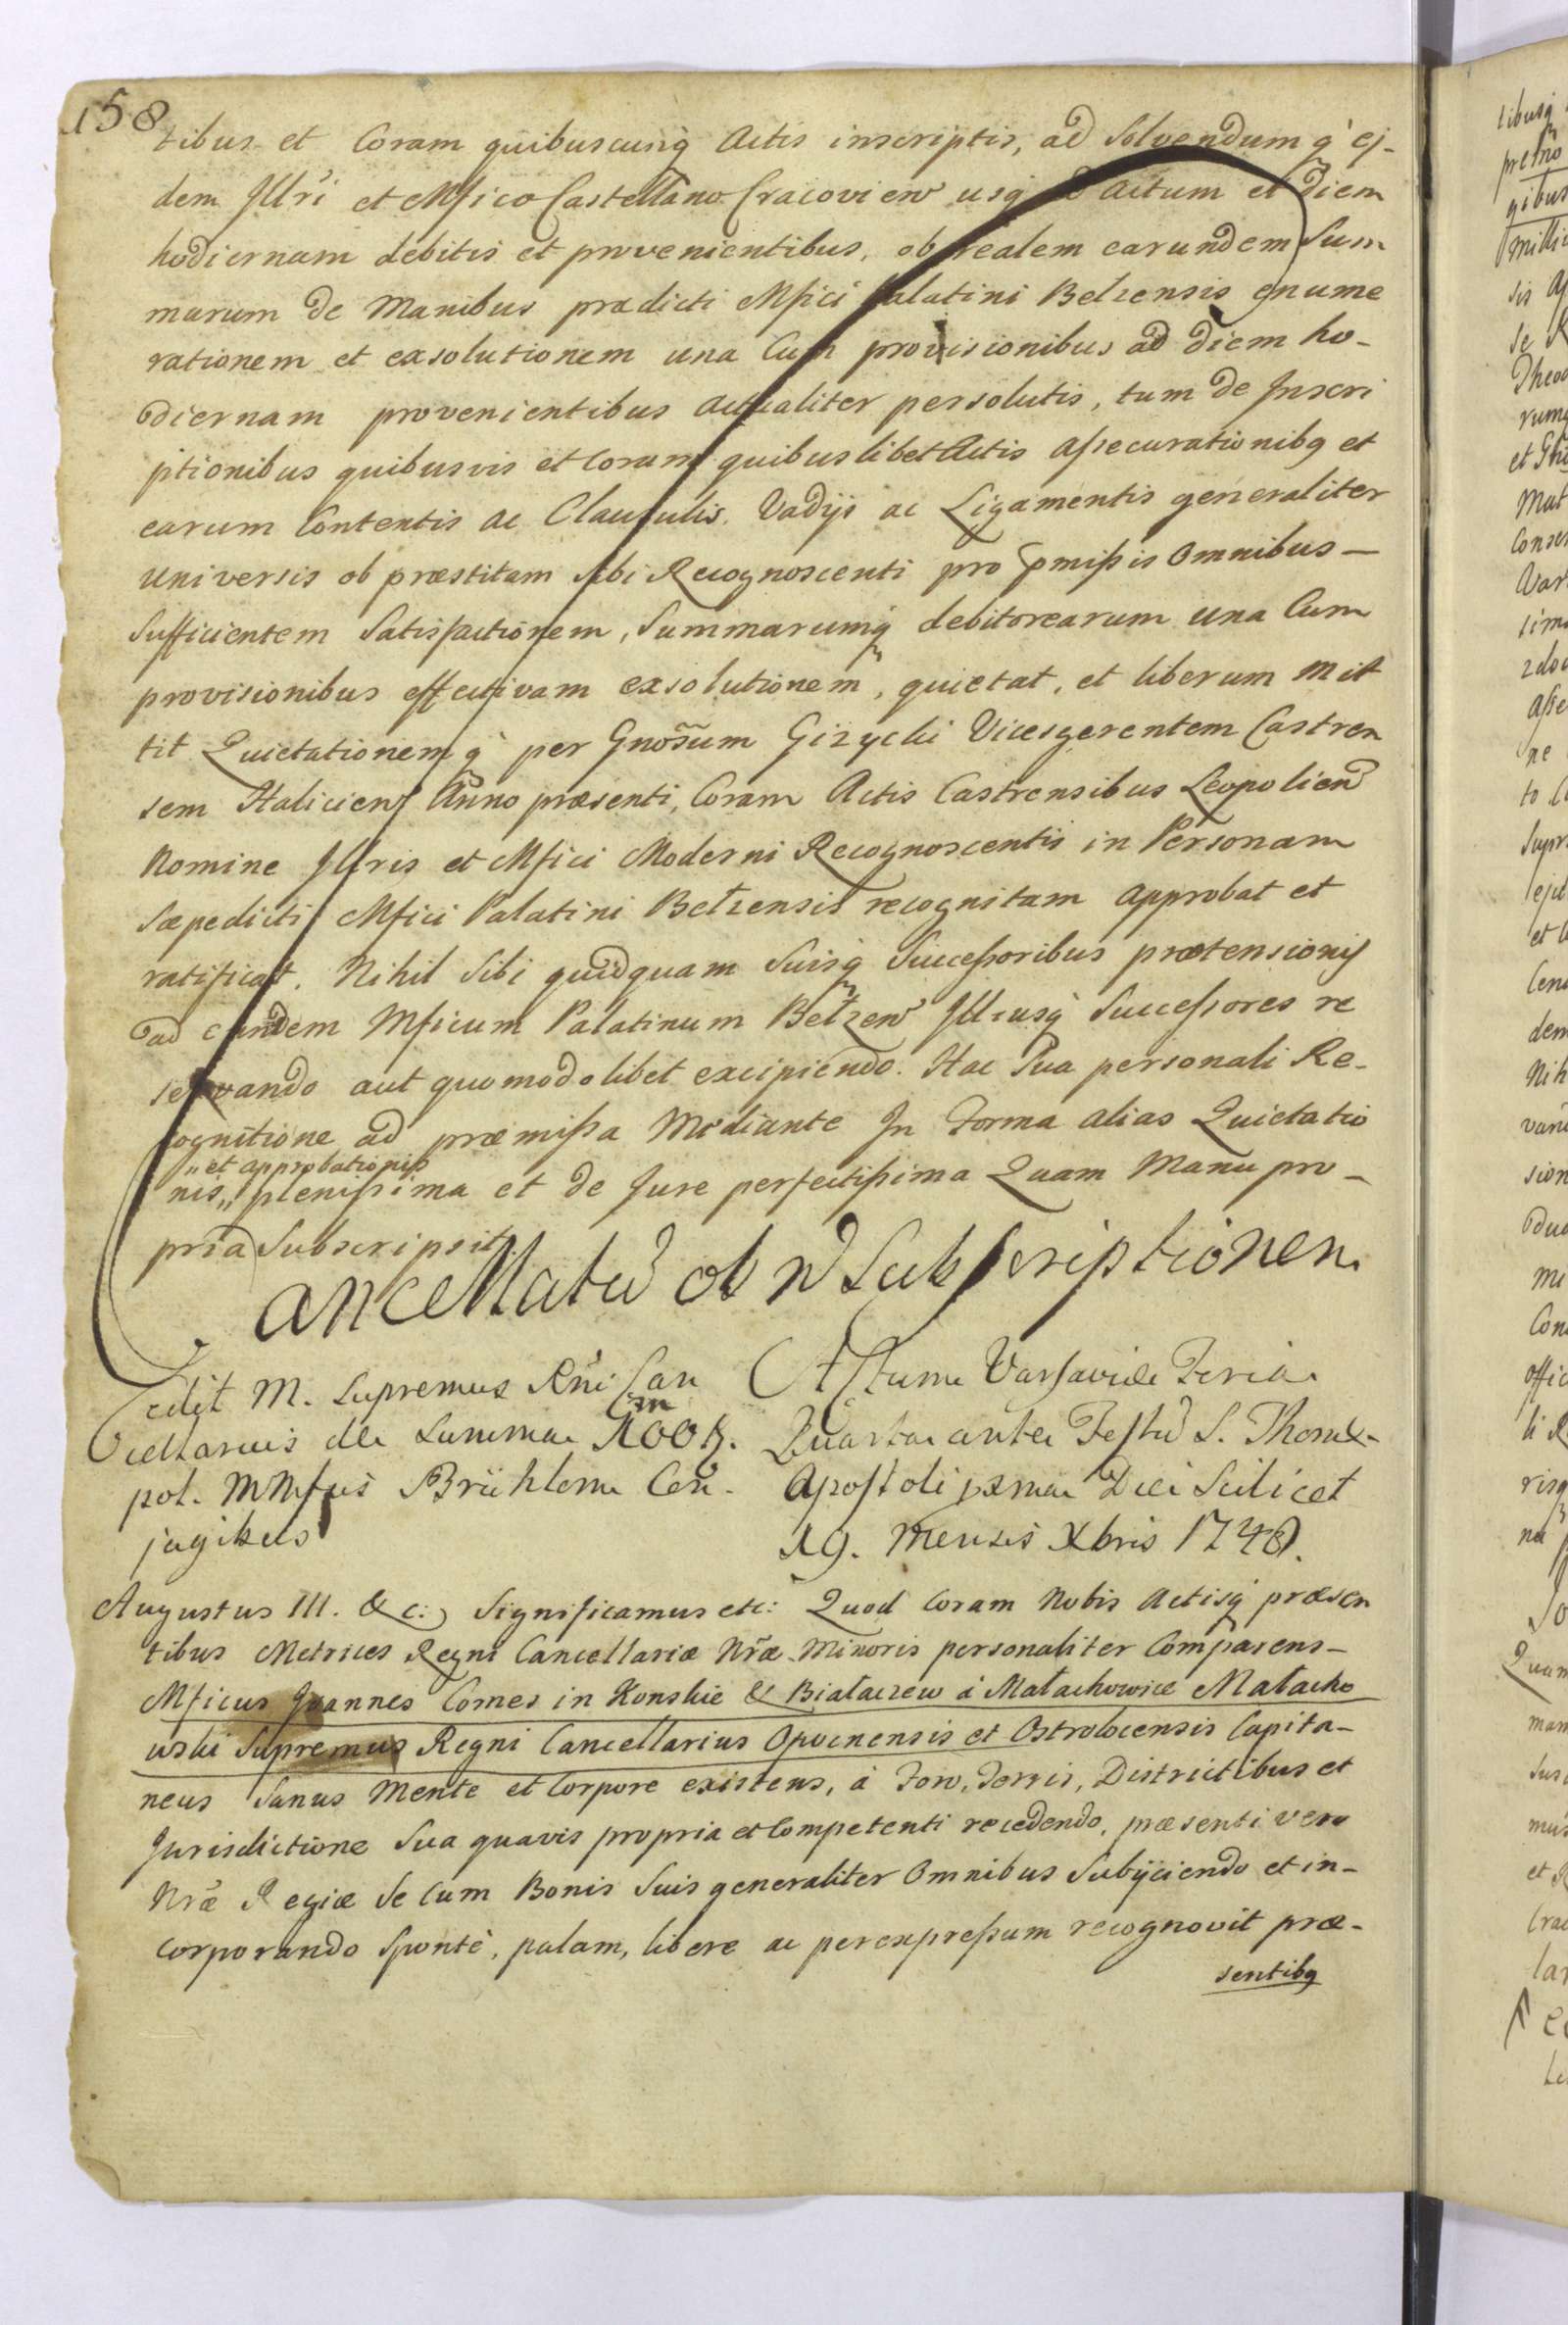 158
tibus et Coram quibuscunq̀ Actis inscriptis, ad Solvendum q̀ ej-
dem Jllr̃i et Mfico Castellano Cracovien usq̀ ad actum et diem
hodiernam debitis et provenientibus, ob realem earundem Sum
marum de Manibus prædicti Mfici Palatini Bełzensis enume
rationem et exsolutionem una Cum provisionibus ad diem ho-
diernam provenientibus actualiter persolutis, tum de Jnscri
ptionibus quibusvis et Coram quibuslibet Actis assecurationibq et
earum Contentis ac Clausulis, Vadijs ac Ligamentis generaliter
universis ob præstitam sibi Recognoscenti pro pmissis Omnibus –
Sufficientem Satisfactionem, Summarumq̀ debitorearum una Cum
provisionibus effectivam exsolutionem, quietat, et liberum Mit
tit Quietationemq̀ per Gnõsum Giżycki Vicesgerentem Castren
sem Haliciens Anno præsenti, Coram Actis Castrensibus Leopolien
Nomine Jllris et Mfici Moderni Recognoscentis in Personam
Sæpedicti Mfici Palatini Bełzensis recognitam approbat et
ratificat. Nihil Sibi quidquam Suisq̀ Successoribus prætensionis
ad eundem Mficum Palatinum Bełzen Jlliusq̀ Successores re
servando aut quomodolibet excipiendo. Hac Sua personali Re-
cognitione ad præmissa Mediante Jn Forma alias Quietatio
„et approbationis
nis„ plenissima et de Jure perfectissima Quam Manu pro-
pria Subscripsit
Cancellatũ ob ñ Subscriptionem
Cedit M. Supremus Rñi Can
cellarius de Summa 100 m
pol. MMfus Brühlom Con-
jugibus
Actum Varsaviæ Feria
Quarta ante Festũ S. Thomæ
Apostoli pxma Die Scilicet
19. Mensis Xbris 1748.
Augustus III. &c: Significamus etc: Quod Coram Nobis Actisq̀ præsen
tibus Metrices Regni Cancellariæ Nr̃æ Minoris personaliter Comparens –
Mficus Joannes Comes in Konskie & Białaczew à Małachowice Małacho
wski Supremus Regni Cancellarius Opocnensis et Ostrolocensis Capita-
neus Sanus Mente et Corpore existens, à Foro, Terris, Districtibus et
Jurisdictione Sua quavis propria et Competenti recedendo, præsenti vero
Nr̃æ Regiæ Se Cum Bonis Suis generaliter Omnibus Subijciendo et in-
corporando Spontè, palam, libere ac per expressum recognovit præ-
sentibq